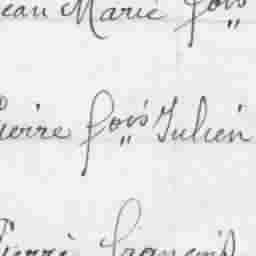 ean Marie fois
ierre fois Julien
ierre François